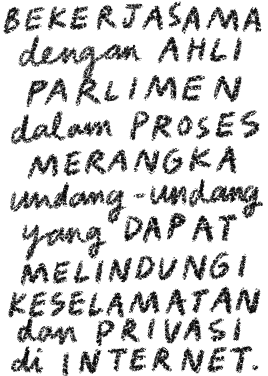 BEKERJASAMA
dengan AHLI
PARLIMEN
dalam PROSES
MERANGKA
undang-undang
yang DAPAT
MELINDUNGI
KESELAMATAN
dan PRIVASI
di INTERNET.